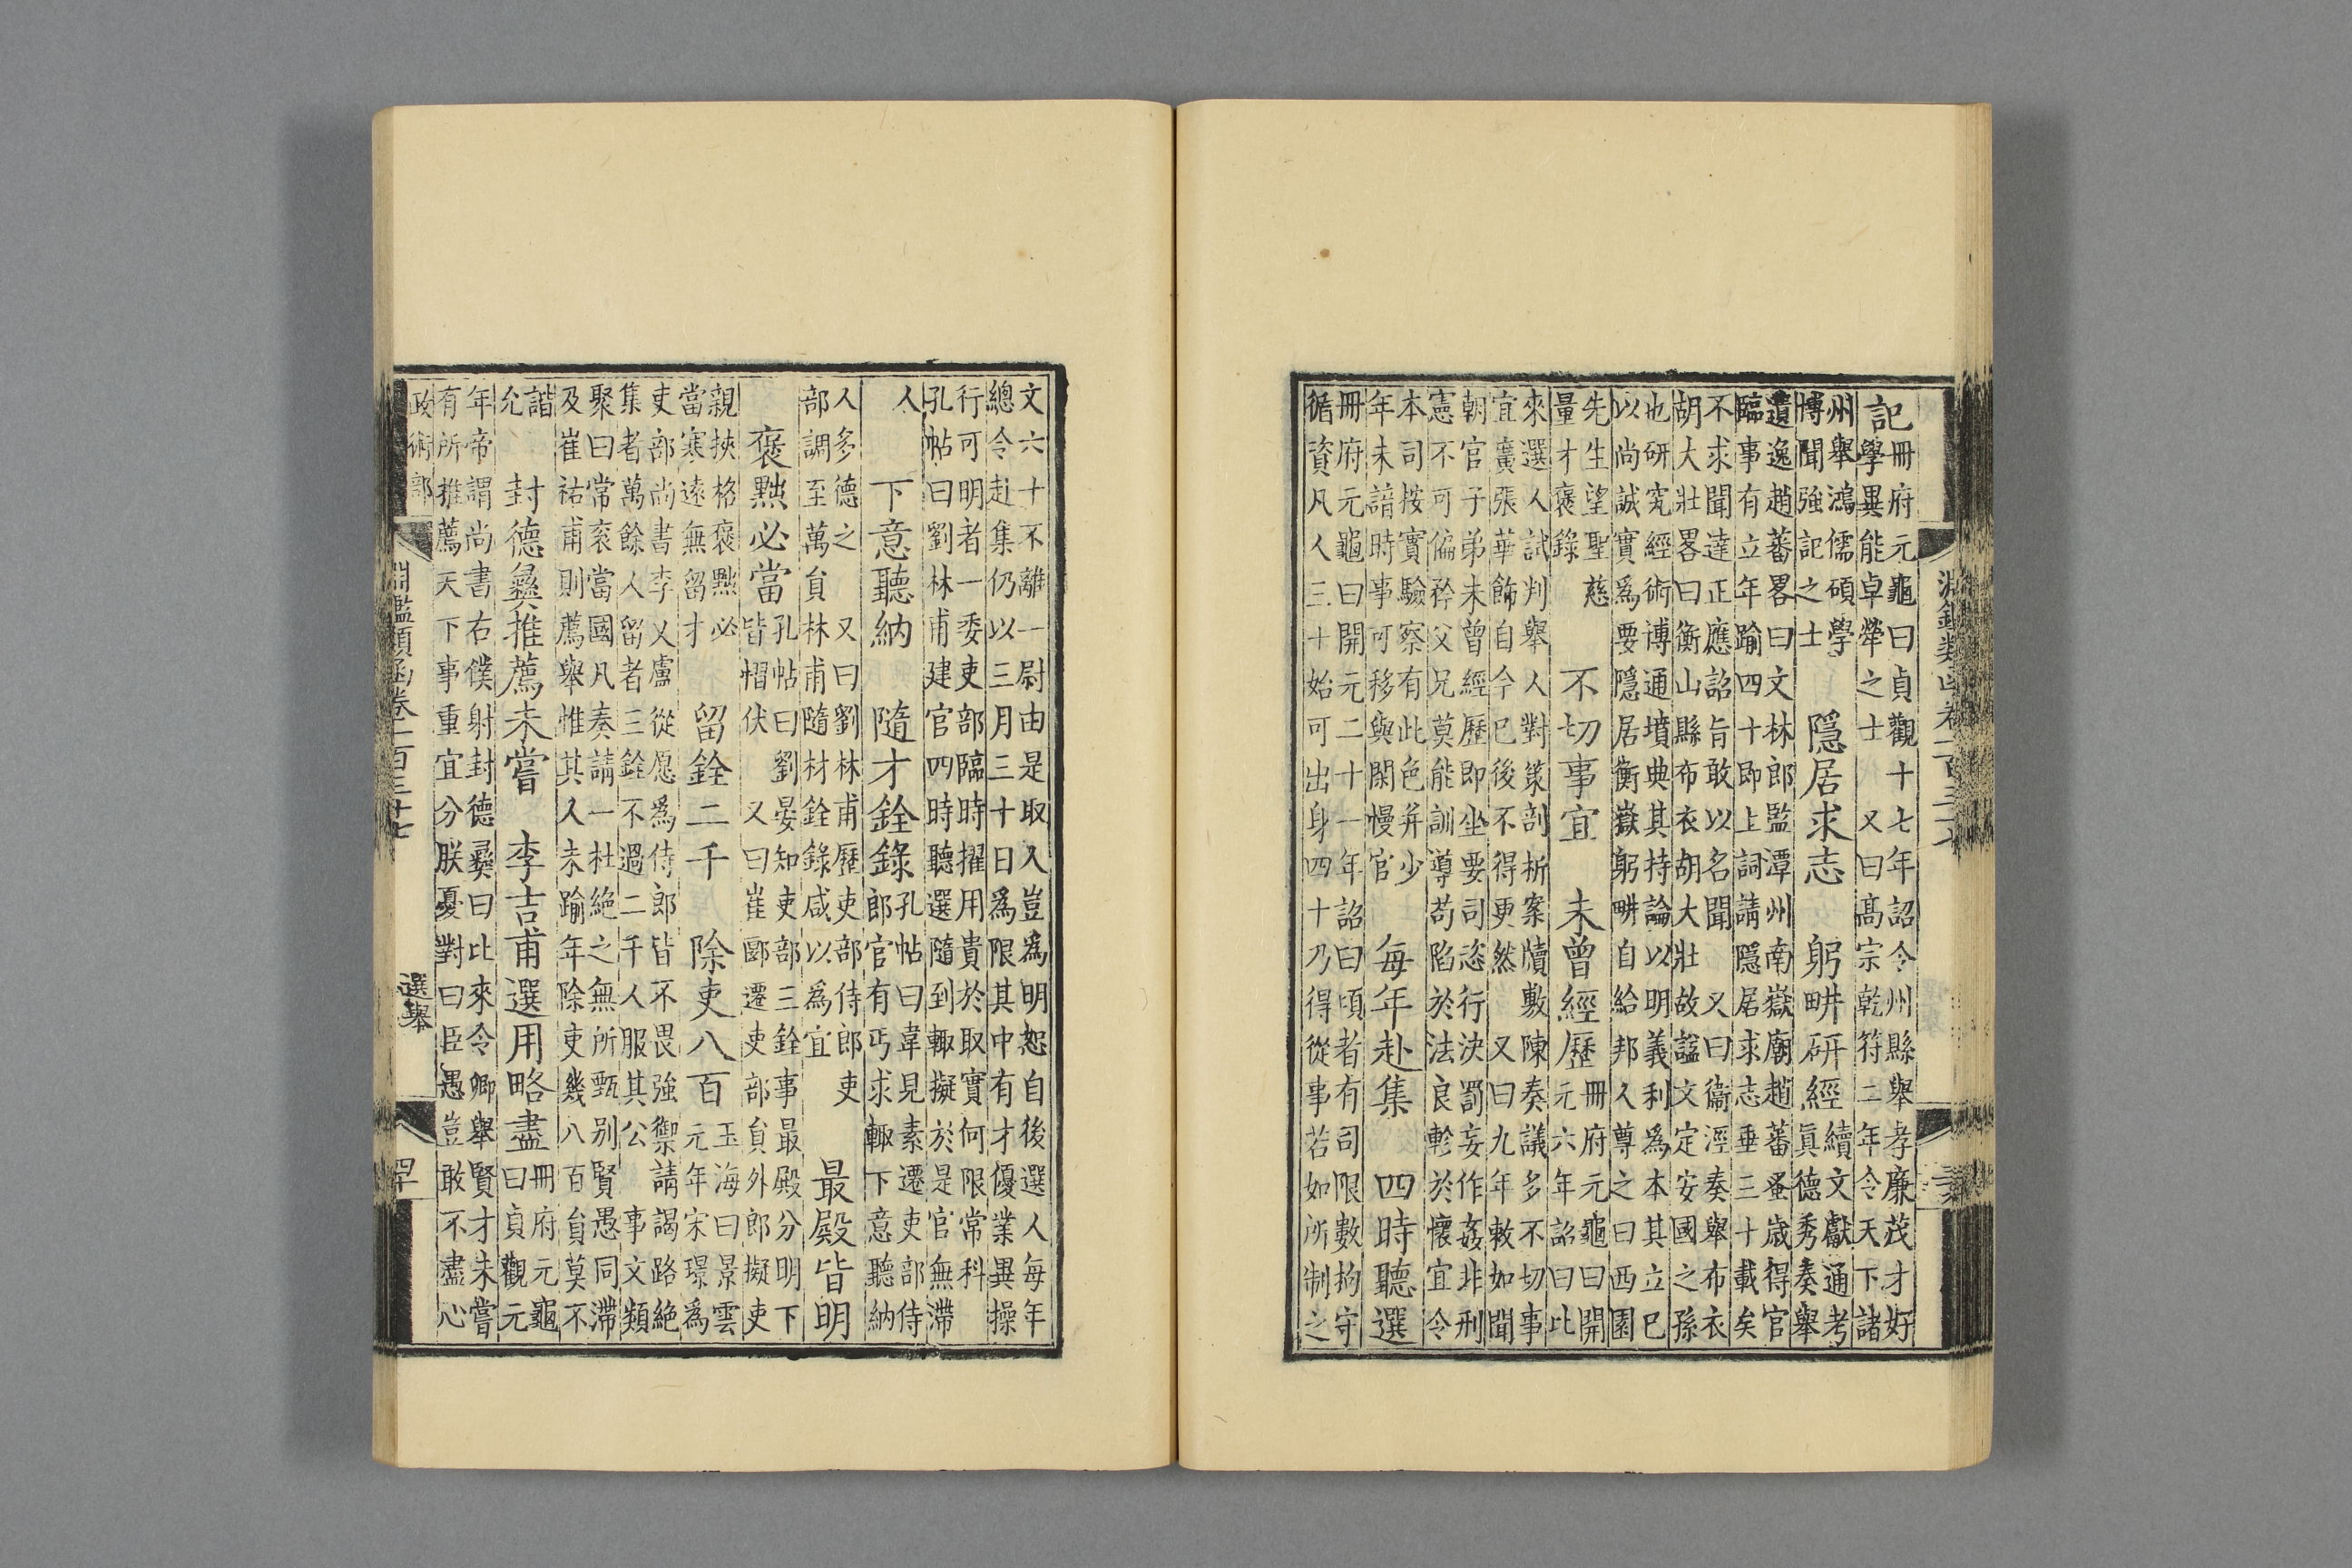 淵鑑類函卷二百三十七
記
冊府元龜曰貞觀十七年詔令州縣舉孝廉茂才好
學異能卓犖之士 又曰高宗乾符二年令天下諸
州舉鴻儒碩學
博聞強記之士
隱居求志 躬畊研經
續文獻通考
真德秀奏舉
遺逸趙蕃畧曰文林郎監潭州南嶽廟趙蕃蚤歲得官
臨事有立年踰四十即上詞請隱居求志垂三十載矣
不求聞達正應詔旨敢以名聞 又曰衞涇奏舉布衣
胡大壯畧曰衡山縣布衣胡大壯故諡文定安國之孫
也研究經術博通墳典其持論以明義利為本其立已
以尚誠實爲要隱居衡嶽躬畊自給邦人尊之曰西園
先生望聖慈
量才褒錄
不切事宜 未曾經歷
冊府元龜曰開
元六年詔曰比
來選人試判舉人對策剖析案牘敷陳奏議多不切事
宜廣張華飾自今已後不得更然 又曰九年敕如聞
朝官子弟未曾經歷即坐要司恣行決罰妄作姦非刑
憲不可偏矜父兄莫能訓導苟陷於法良軫於懷宜令
本司按實驗察有此色并少
年未諳時事可移與閑慢官
每年赴集 四時聽選
冊府元龜曰開元二十一年詔曰頃者有司限數拘守
循資凡人三十始可出身四十乃得從事若如所制之
文六十不離一尉由是取人豈爲明恕自後選人每年
總令赴集仍以三月三十日爲限其中有才優業異操
行可明者一委吏部臨時擢用貴於取實何限常科
孔帖曰劉林甫建官四時聽選隨到輙擬於是官無滯
人
下意聽納 隨才銓錄
孔帖曰韋見素遷吏部侍
郎官有丐求輙下意聽納
人多德之 又曰劉林甫歷吏部侍郎吏
部調至萬貟林甫隨材銓錄咸以為宜
最殿皆明
褒㸃必當
孔帖曰劉晏知吏部三銓事最殿分明下
皆慴伏 又曰崔郾遷吏部貟外郎擬吏
親挾格褒㸃必
當寒遠無留才
留銓二千 除吏八百
玉海曰景雲
元年宋璟爲
吏部尚書李乂盧從愿爲侍郎皆不畏強禦請謁路絕
集者萬餘人留者三銓不過二千人服其公 事文類
聚曰常衮當國凡奏請一杜絕之無所甄别賢愚同滯
及崔祐甫則薦舉惟其人未踰年除吏幾八百貟莫不
諧
允
封德彝推薦未嘗 李吉甫選用略盡
冊府元龜
曰貞觀元
年帝謂尚書右僕射封德彝曰比來令卿舉賢才未嘗
有所推薦天下事重宜分朕憂對曰臣愚豈敢不盡心
政術部 淵鑑類函卷二百三十七 選舉